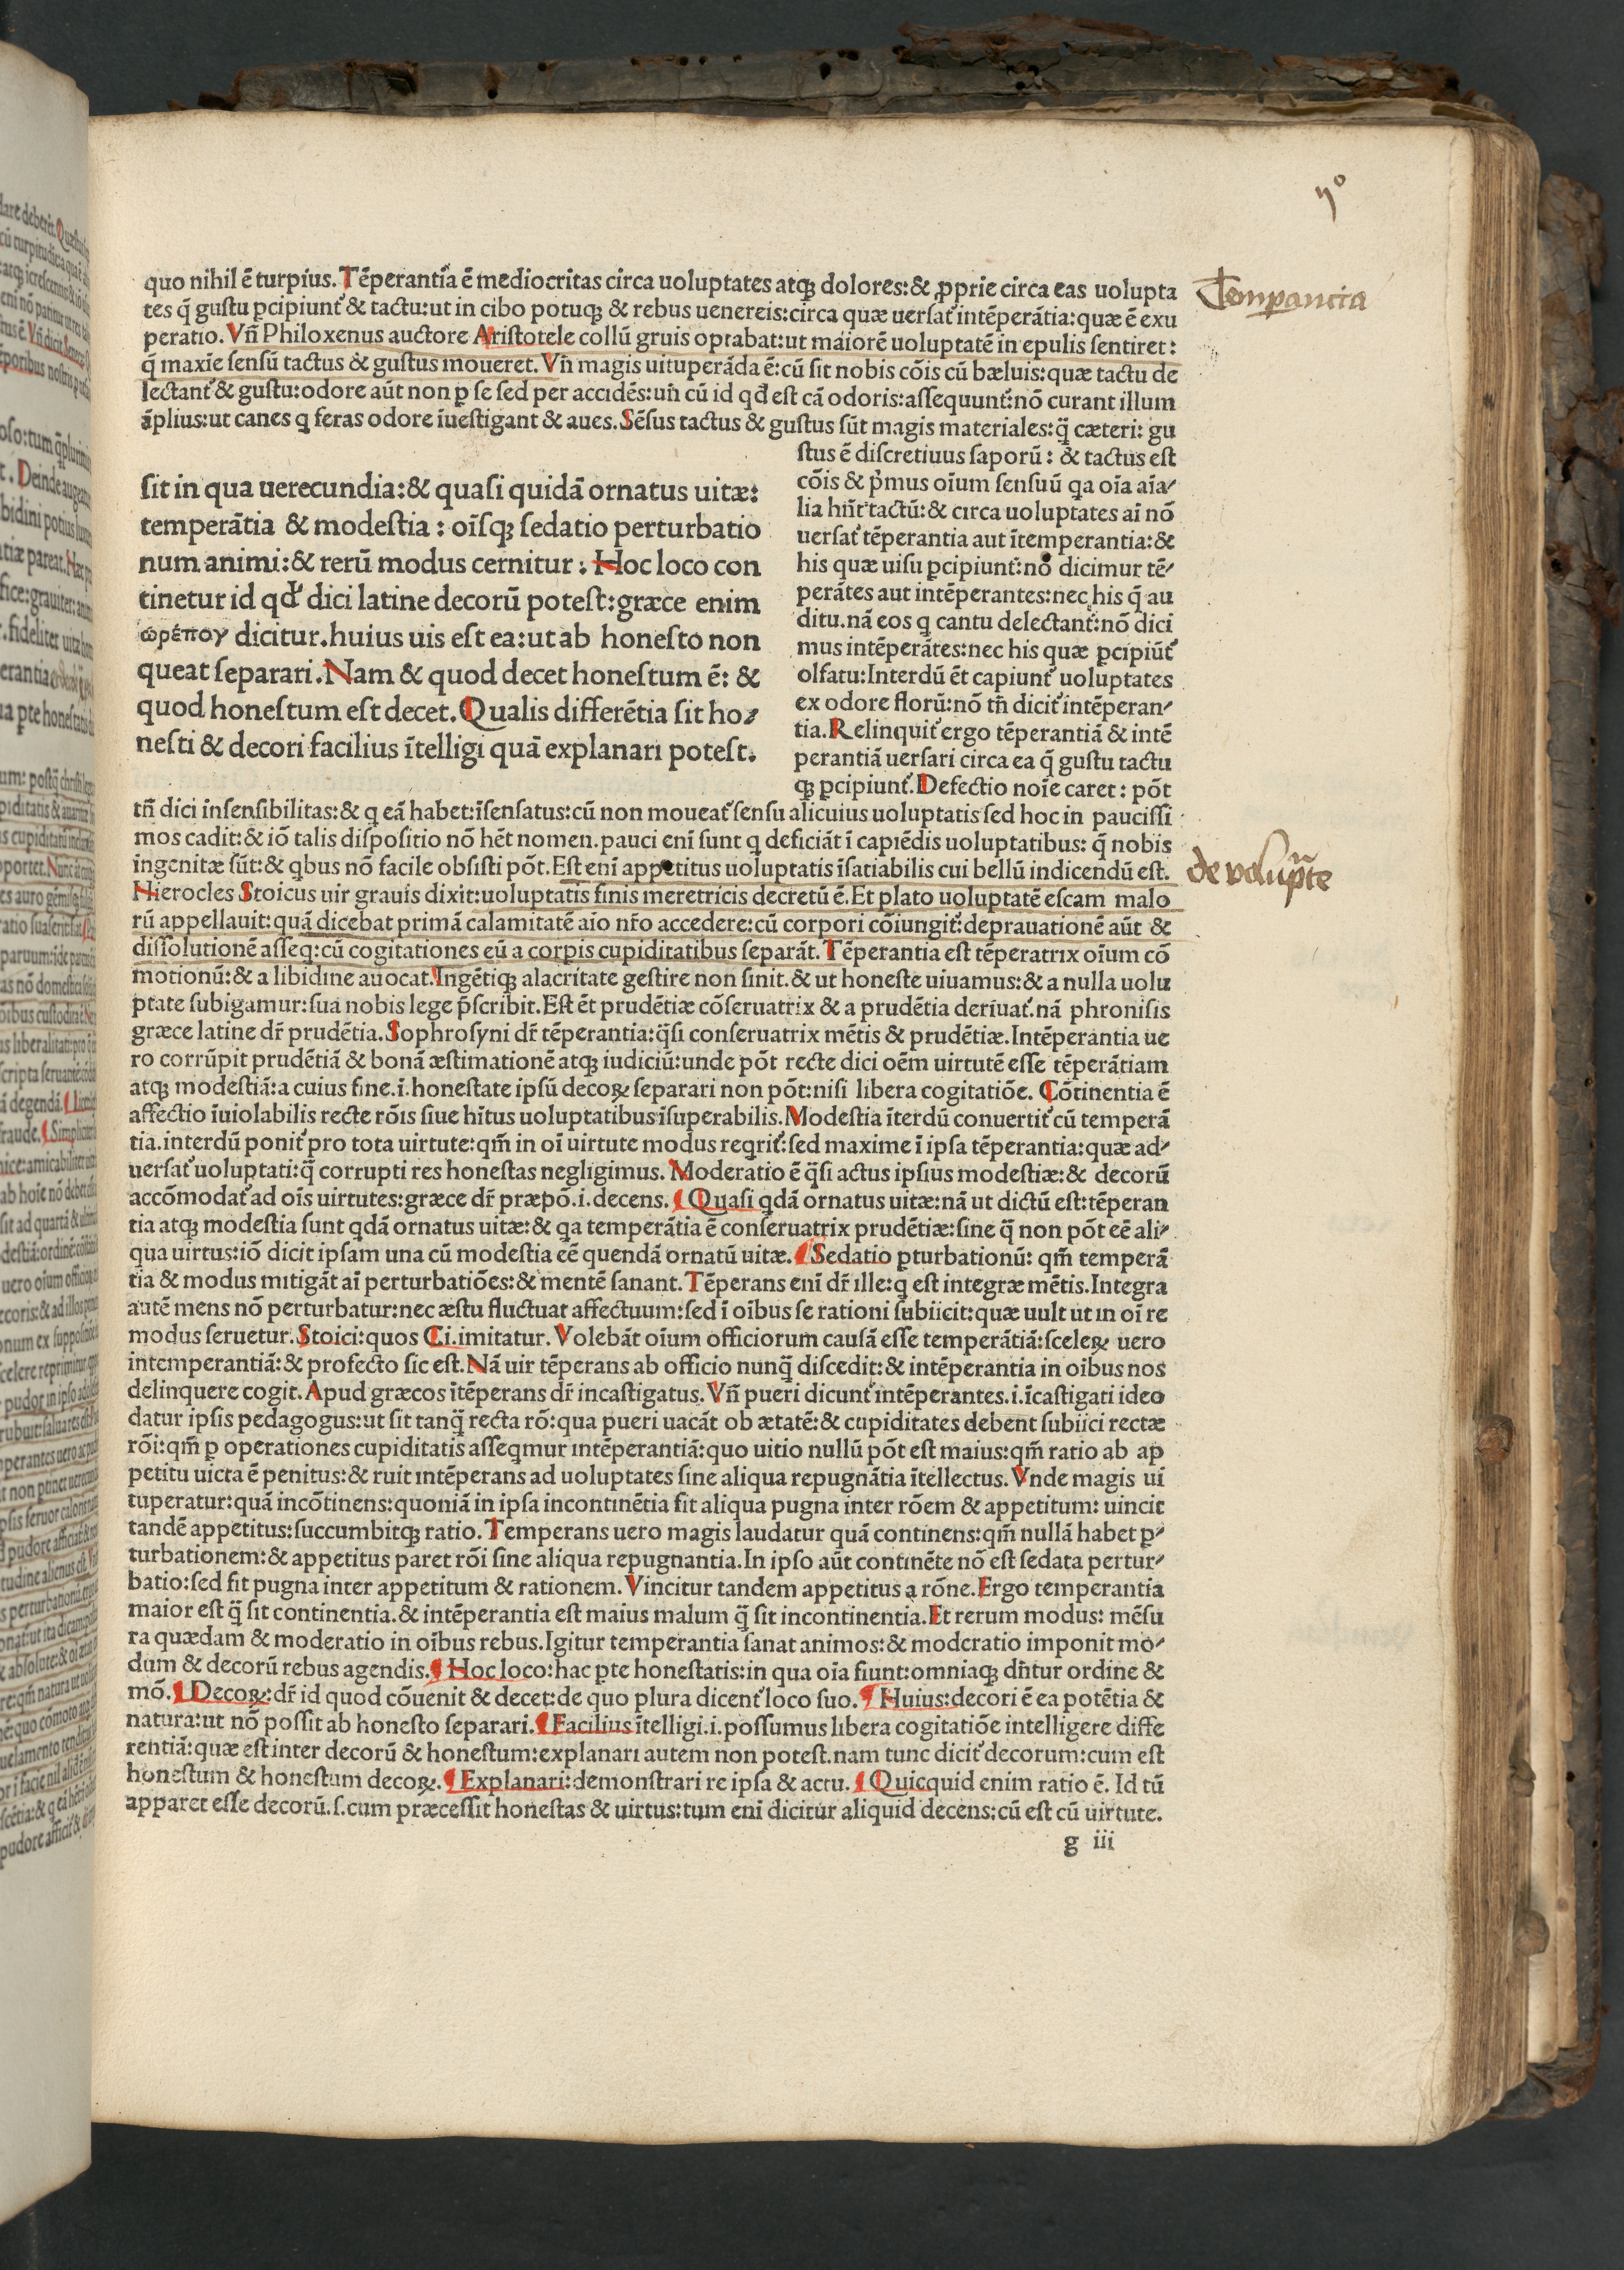 quo nihil ē turpius. Tēperantia ē mediocritas circa uoluptates atqꝫ dolores:& ꝓprie circa eas uolupta
tes q̄ gustu ꝑcipiunt᷑ & tactu:ut in cibo potuqꝫ & rebus uenereis:circa quæ uersat᷑ intēperātia:quæ ē exu
peratio. Vn̄ Philoxenus auctore Aristotele collū gruis optabat:ut maiorē uoluptatē in epulis sentiret:
q̄ maxīe sensū tactus & gustus moueret. Vn̄ magis uituperāda ē:cū sit nobis cōis cū bæluis:quæ tactu de
lectant᷑ & gustu:odore aūt non ꝑ se sed per accidēs:un̄ cū id qđ est cā odoris:assequunt᷑:nō curant illum
āplius:ut canes q feras odore īuestigant & aues. Sēsus tactus & gustus sūt magis materiales:q̄ cæteri: gu
stus ē discretiuus saporū: & tactus est
cōis & p̄mus oīum sensuū qa oīa aīa⸗
lia hn̄t tactū:& circa uoluptates aī nō
uersat᷑ tēperantia aut ītemperantia:&
his quæ uisu ꝑcipiunt᷑:nō dicimur tē⸗
perātes aut intēperantes:nec his q̄ au
ditu.nā eos q cantu delectant᷑:nō dici
mus intēperātes:nec his quæ ꝑcipiūt᷑
olfatu:Interdū ēt capiunt᷑ uoluptates
ex odore florū:nō tn̄ dicit᷑ intēperan⸗
tia. Relinquit᷑ ergo tēperantiā & intē
perantiā uersari circa ea q̄ gustu tactu
qꝫ ꝑcipiunt᷑. Defectio noīe caret: pōt
sit in qua uerecundia:& quasi quidā ornatus uitæ:
temperātia & modestia: oīsqꝫ sedatio perturbatio
num animi:& rerū modus cernitur: Hoc loco con
tinetur id qđ dici latine decorū potest:græce enim
ωρέποy dicitur.huius uis est ea:ut ab honesto non
queat separari. Nam & quod decet honestum ē: &
quod honestum est decet. Qualis differētia sit ho⸗
nesti & decori facilius ītelligi quā explanari potest.
tn̄ dici insensibilitas:& q eā habet:īsensatus:cū non moueat᷑ sensu alicuius uoluptatis sed hoc in paucissi
mos cadit:& iō talis dispositio nō hēt nomen.pauci enī sunt q deficiāt ī capiēdis uoluptatibus: q̄ nobis
ingenitæ sūt:& qbus nō facile obsisti pōt. Est enī appetitus uoluptatis īsatiabilis cui bellū indicendū est.
Hierocles Stoicus uir grauis dixit:uoluptatis finis meretricis decretū ē. Et plato uoluptatē escam malo
rū appellauit:quā dicebat primā calamitatē aīo nr̄o accedere:cū corpori cōiungit᷑:deprauationē aūt &
dissolutionē asseq:cū cogitationes eū a corpis cupiditatibus separāt. Tēperantia est tēperatrix oīum cō
motionū:& a libidine auocat. Ingētiqꝫ alacritate gestire non sinit.& ut honeste uiuamus:& a nulla uolu
ptate subigamur:sua nobis lege p̄scribit. Est ēt prudētiæ cōseruatrix & a prudētia deriuat᷑.nā phronisis
græce latine dr̄ prudētia. Sophrosyni dr̄ tēperantia:q̄si conseruatrix mētis & prudētiæ. Intēperantia ue
ro corrūpit prudētiā & bonā æstimationē atqꝫ iudiciū:unde pōt recte dici oēm uirtutē esse tēperātiam
atqꝫ modestiā:a cuius fine.i.honestate ipsū decoꝝ separari non pōt:nisi libera cogitatiōe. Cōtinentia ē
affectio īuiolabilis recte rōis siue hītus uoluptatibus īsuperabilis. Modestia īterdū conuertit᷑ cū temperā
tia.interdū ponit᷑ pro tota uirtute:qm̄ in oī uirtute modus reqrit᷑:sed maxime ī ipsa tēperantia:quæ ad⸗
uersat᷑ uoluptati:q̄ corrupti res honestas negligimus. Moderatio ē q̄si actus ipsius modestiæ:& decorū
accōmodat᷑ ad oīs uirtutes:græce dr̄ præpō.i.decens. ¶ Quasi qdā ornatus uitæ:nā ut dictū est:tēperan
tia atqꝫ modestia sunt qdā ornatus uitæ:& qa temperātia ē conseruatrix prudētiæ:sine q̄ non pōt eē ali⸗
qua uirtus:iō dicit ipsam una cū modestia eē quendā ornatū uitæ. ¶ Sedatio ꝑturbationū: qm̄ temperā
tia & modus mitigāt aī perturbatiōes:& mentē sanant. Tēperans enī dr̄ ille:q est integræ mētis. Integra
autē mens nō perturbatur:nec æstu fluctuat affectuum:sed ī oībus se rationi subiicit:quæ uult ut in oī re
modus seruetur. Stoici:quos Ci.imitatur. Volebāt oīum officiorum causā esse temperātiā:sceleꝝ uero
intemperantiā:& profecto sic est. Nā uir tēperans ab officio nunq̄ discedit:& intēperantia in oībus nos
delinquere cogit. Apud græcos ītēperans dr̄ incastigatus. Vn̄ pueri dicunt᷑ intēperantes.i.īcastigati ideo
datur ipsis pedagogus:ut sit tanq̄ recta rō:qua pueri uacāt ob ætatē:& cupiditates debent subiici rectæ
rōi:qm̄ ꝑ operationes cupiditatis asseqmur intēperantiā:quo uitio nullū pōt est maius:qm̄ ratio ab ap
petitu uicta ē penitus:& ruit intēperans ad uoluptates sine aliqua repugnātia ītellectus. Vnde magis ui
tuperatur:quā incōtinens:quoniā in ipsa incontinētia fit aliqua pugna inter rōem & appetitum: uincit
tandē appetitus:succumbitqꝫ ratio. Temperans uero magis laudatur quā continens:qm̄ nullā habet ꝑ⸗
turbationem:& appetitus paret rōi sine aliqua repugnantia. In ipso aūt continēte nō est sedata pertur⸗
batio:sed fit pugna inter appetitum & rationem. Vincitur tandem appetitus a rōne. Ergo temperantia
maior est q̄ sit continentia.& intēperantia est maius malum q̄ sit incontinentia. Et rerum modus: mēsu
ra quædam & moderatio in oībus rebus. Igitur temperantia sanat animos:& moderatio imponit mo⸗
dum & decorū rebus agendis. ¶ Hoc loco:hac ꝑte honestatis:in qua oīa fiunt:omniaqꝫ dn̄tur ordine &
mō. ¶ Decoꝝ:dr̄ id quod cōuenit & decet:de quo plura dicent᷑ loco suo. ¶ Huius:decori ē ea potētia &
natura:ut nō possit ab honesto separari. ¶ Facilius ītelligi.i.possumus libera cogitatiōe intelligere diffe
rentiā:quæ est inter decorū & honestum:explanari autem non potest.nam tunc dicit᷑ decorum:cum est
honestum & honestum decoꝝ. ¶ Explanari:demonstrari re ipsa & actu. ¶ Quicquid enim ratio ē. Id tū
apparet esse decorū.s.cum præcessit honestas & uirtus:tum enī dicitur aliquid decens:cū est cū uirtute.
g iii
Temperancia
de volup̄te